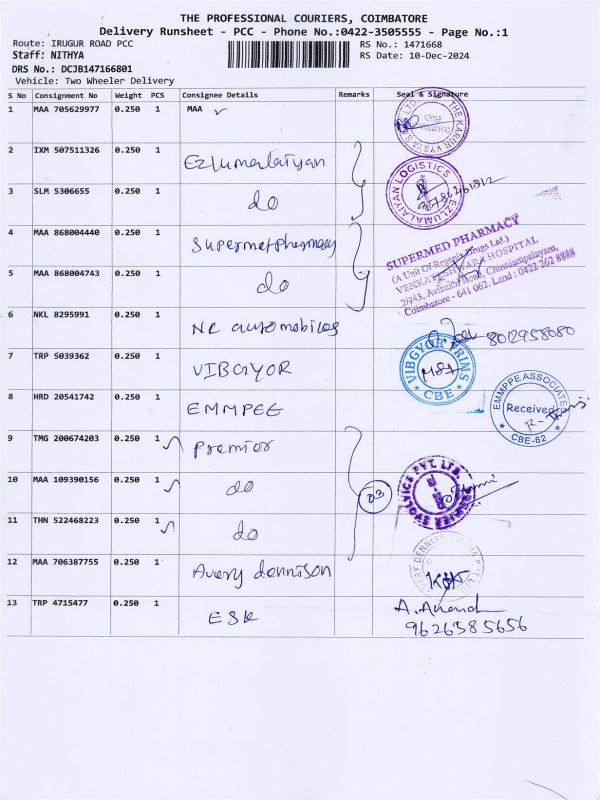 THE PROFESSIONAL COURIERS, COIMBATORE
Delivery Runsheet - PCC - Phone No.:0422-3505555 - Page No.:1
Route: IRUGUR ROAD PCC
RS No.: 1471668
Staff: NITHYA
RS Date: 10-Dec-2024
DRS No.: DCJB147166801
Vehicle: Two Wheeler Delivery
S No Consignment No Weight PCS Consignee Details Remarks Seal & Signature
1 MAA 705629977 0.250 1 MAA
THE KARUR VYSYA
2 IXM 507511326 0.250 1 Ezlumalaiyan
EZLUMALAIYAN LOGISTICS
3 SLM 5306655 0.250 1 do
4 MAA 868004440 0.250 1 Supermetpharmacy
SUPERMED PHARMACY
(A Unit Of Regenix Drugs Ltd.)
VENKATESHWARA HOSPITAL
2/443, Avinashi Road, Chinniampalayam,
Coimbatore - 641 062. Land : 0422 262 8888
5 MAA 868004743 0.250 1 do
6 NKL 8295991 0.250 1 Nc automobiles 8012958080
7 TRP 5039362 0.250 1 VIBGYOR
VIBGYOR TRIMS
CBE
8 HRD 20541742 0.250 1 EMMPEE
EMMPPE ASSOCIATE
Received
CBE-62
9 TMG 200674203 0.250 1 Premier
10 MAA 109390156 0.250 1 do 03
PREMIER EVOLVICS PVT. LTD.
11 THN 522468223 0.250 1 do
12 MAA 706387755 0.250 1 Avery dennison
13 TRP 4715477 0.250 1 ESK A. Anand
9626585656